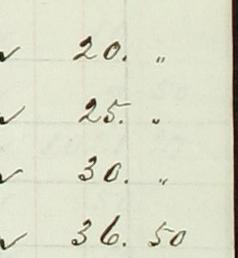 ✓ 20. "
✓ 25. "
✓ 30. "
✓ 36. 50